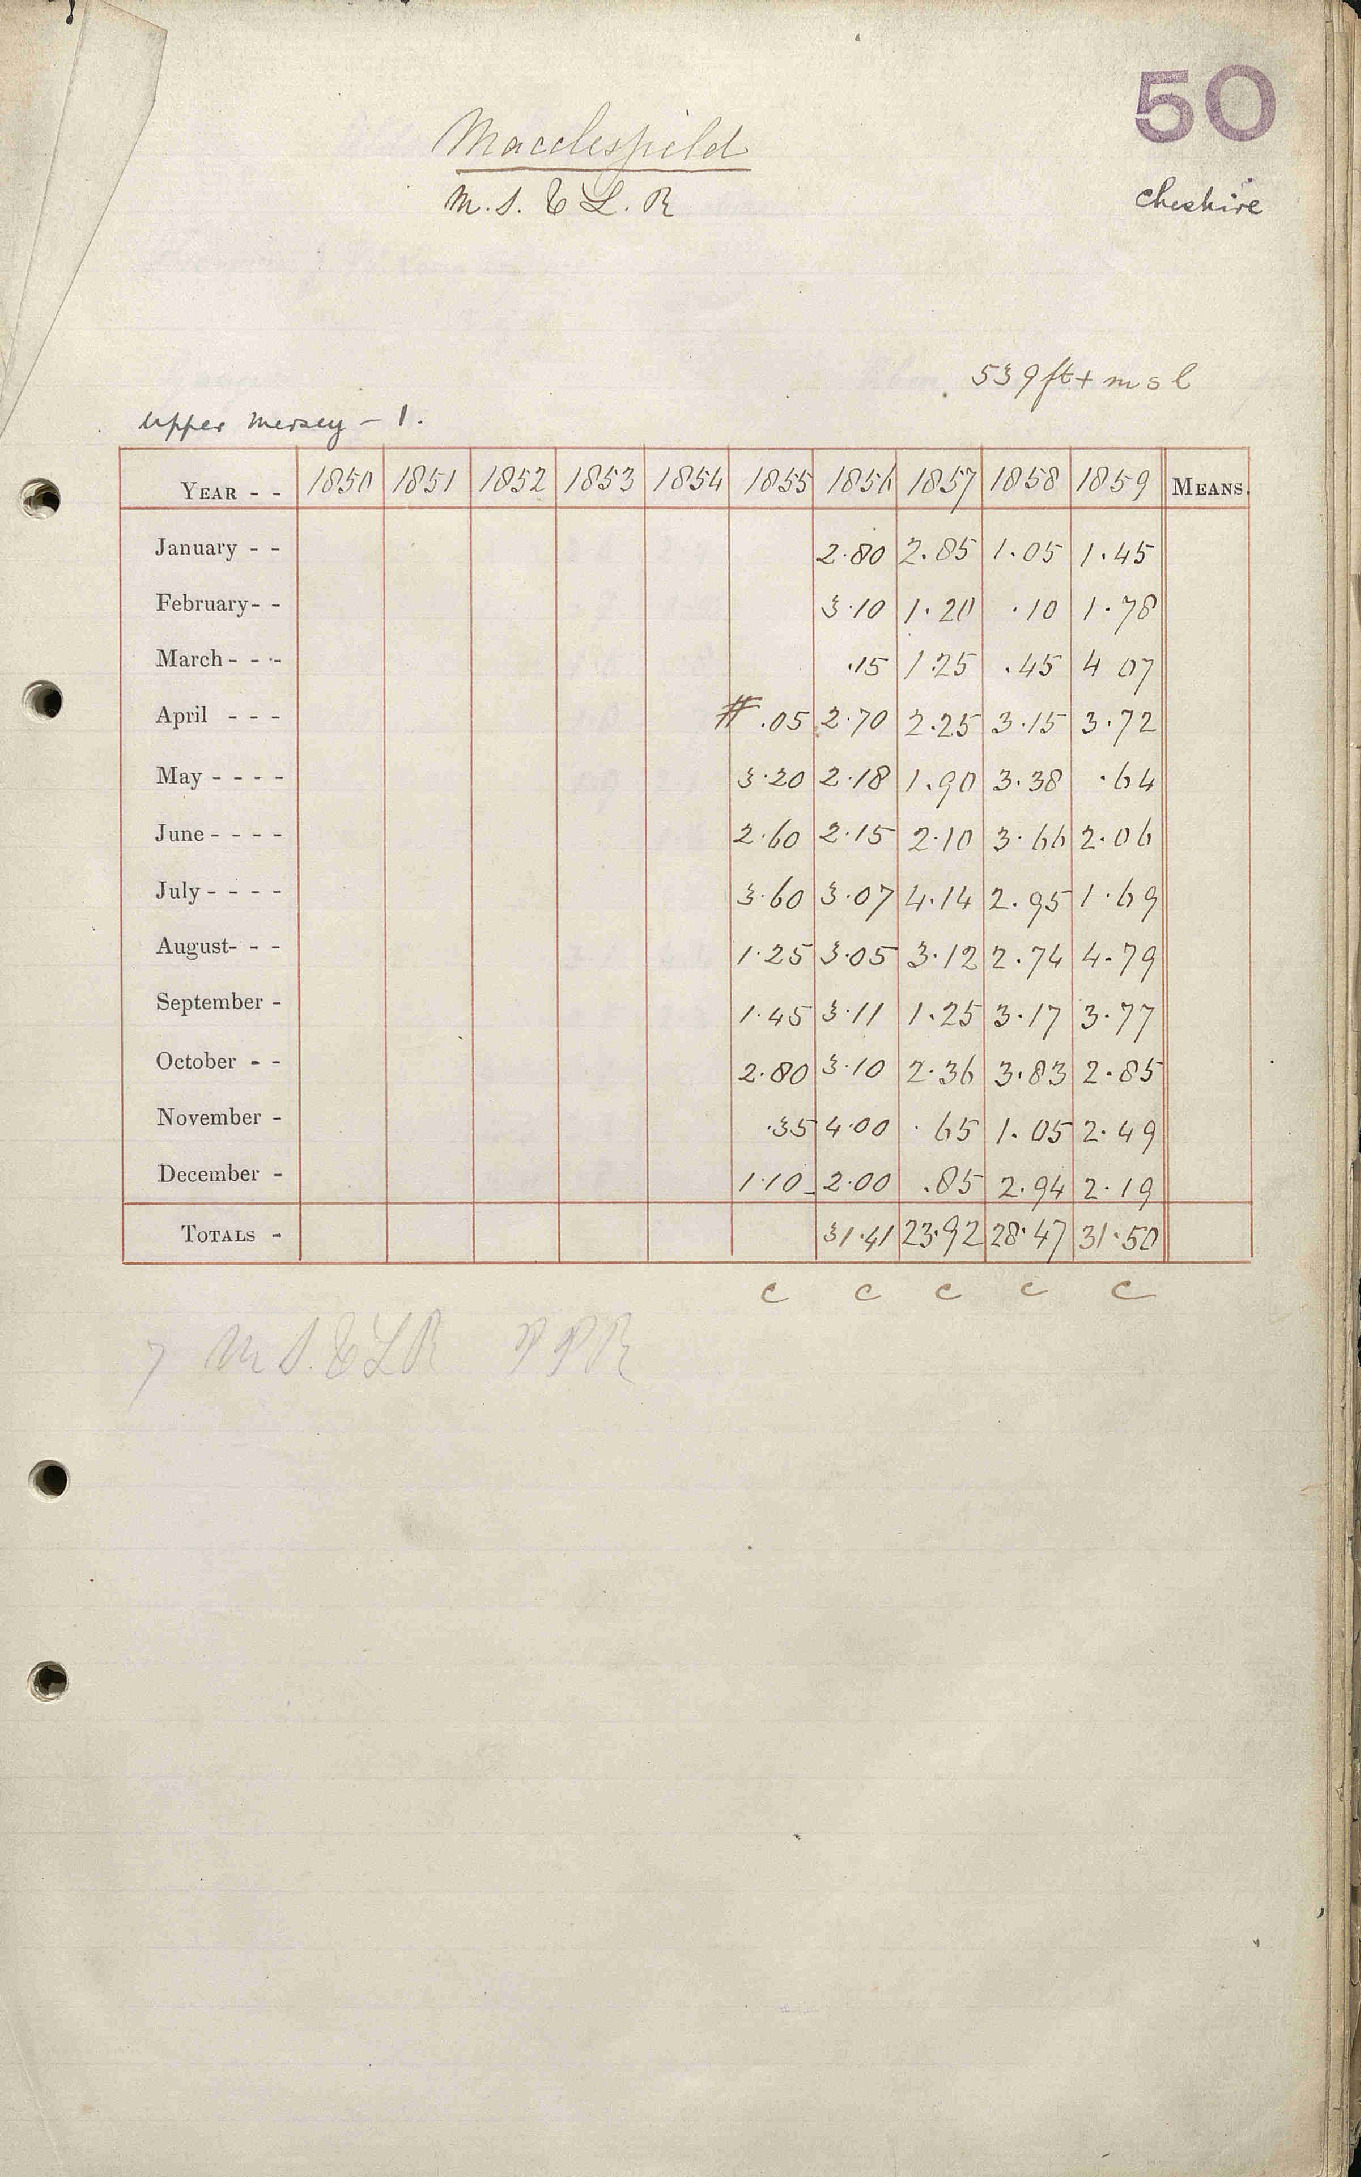 50
Macclesfield
M.S. & L. R
Cheshire
539 ft + m s l
Upper Mersey – 1.
YEAR - - 1850 1851 1852 1853 1854 1855 1856 1857 1858 1859 MEANS.
January - - 2.80 2.85 1.05 1.45
February - - 3.10 1.20 .10 1.78
March - - - .15 1.25 .45 4 07
April - - - # .05 2.70 2.25 3.15 3.72
May - - - - 3.20 2.18 1.90 3.38 .64
June - - - - 2.60 2.15 2.10 3.66 2.06
July - - - - 3.60 3.07 4.14 2.95 1.69
August - - - 1.25 3.05 3.12 2.74 4.79
September - 1.45 3.11 1.25 3.17 3.77
October - - 2.80 3.10 2.36 3.83 2.85
November - .35 4.00 .65 1.05 2.49
December - 1.10 2.00 .85 2.94 2.19
TOTALS - 31.41 23.92 28.47 31.50
c c c c c
7 M S. & L R P P R